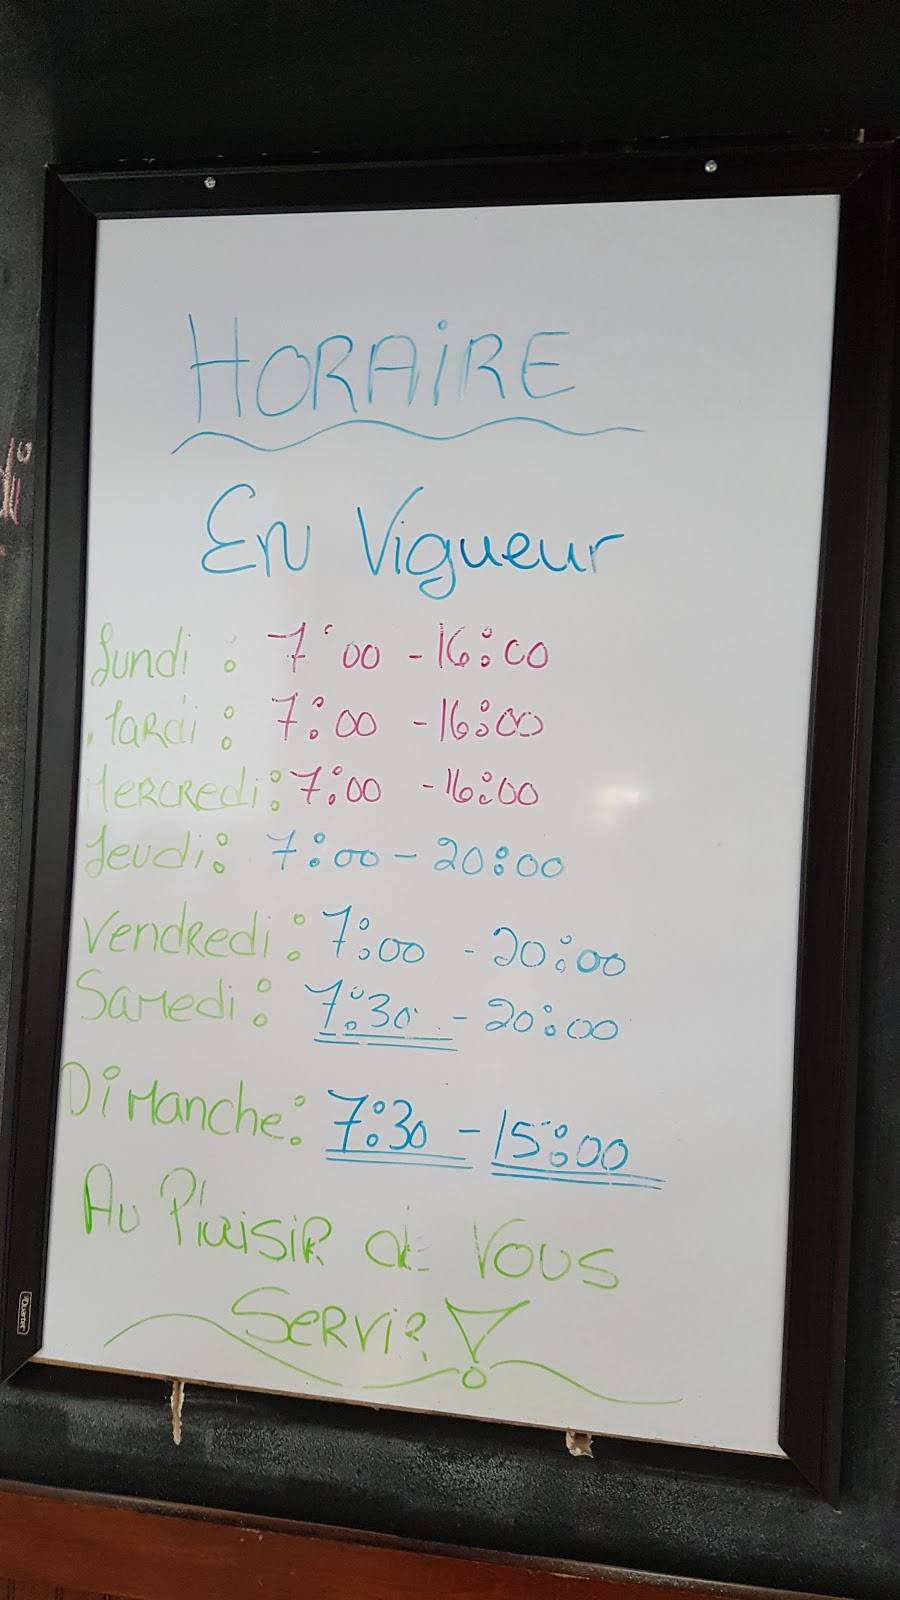 HORAIRE
En Vigueur
Lundi : 7:00 - 16:00
Mardi : 7:00 - 16:00
Mercredi : 7:00 - 16:00
Jeudi : 7:00 - 20:00
Vendredi : 7:00 - 20:00
Samedi : 7:30 - 20:00
Dimanche : 7:30 - 15:00
Au Plaisir de Vous
Servir !
Quartet